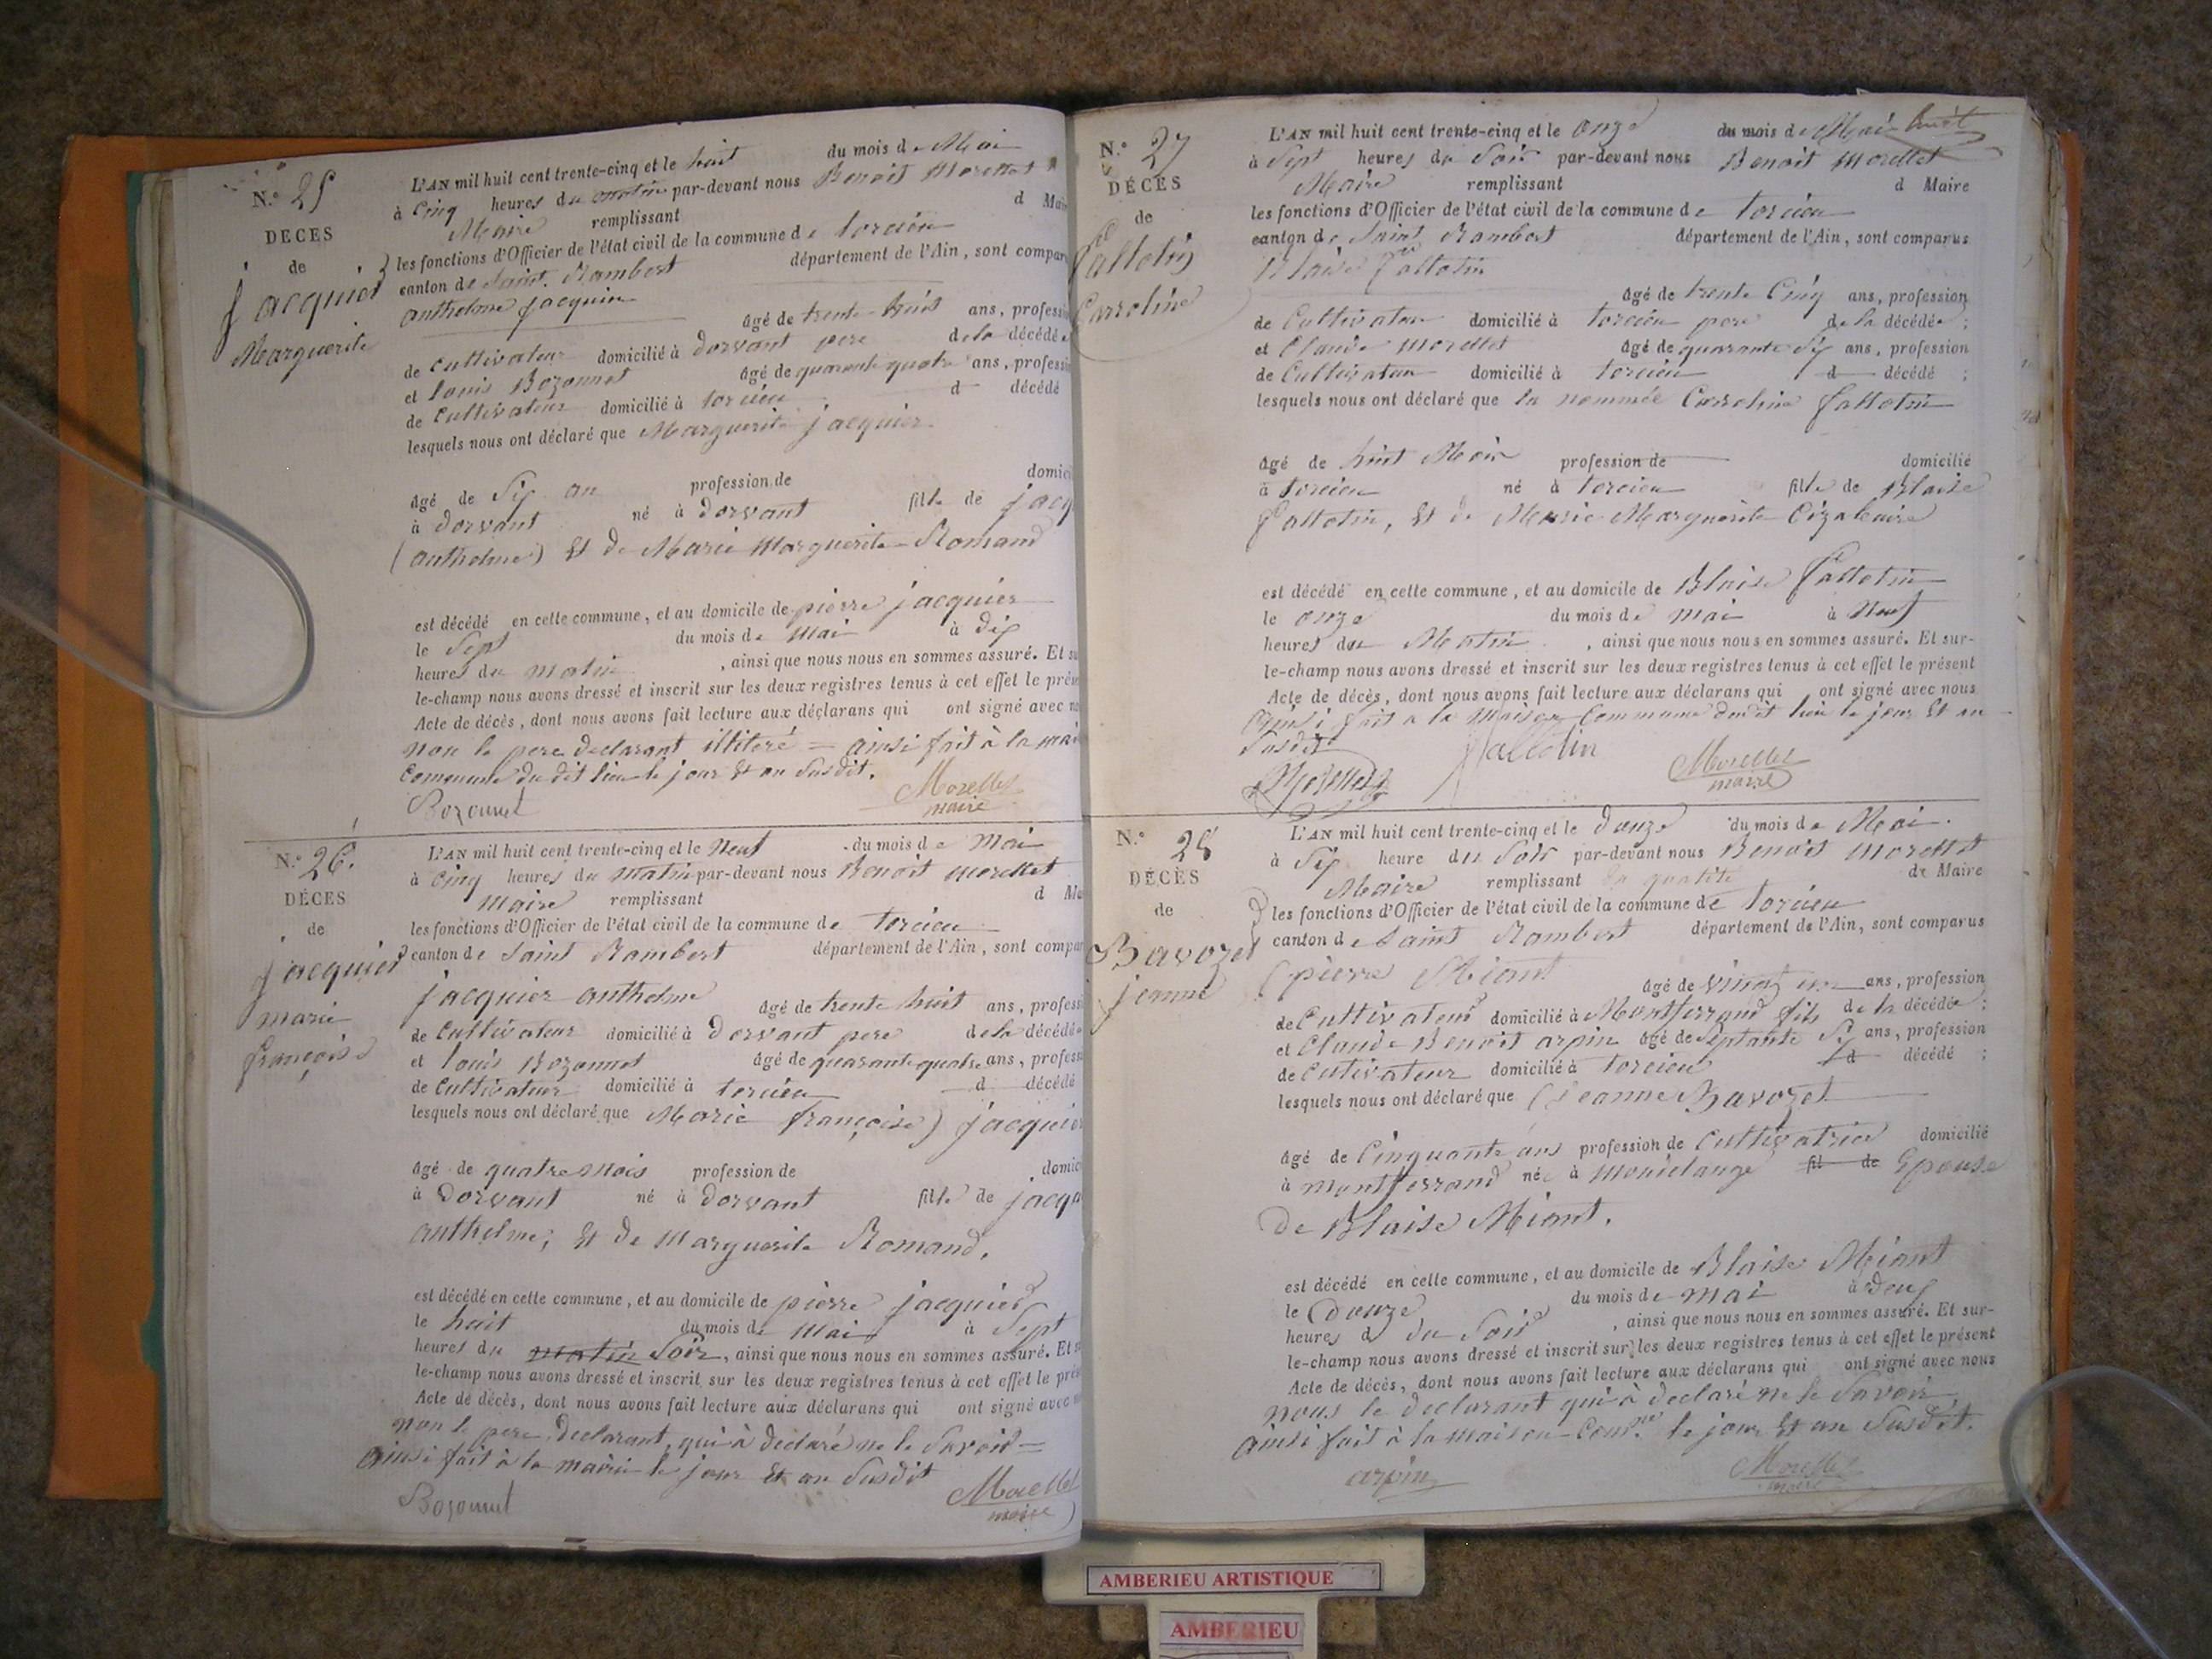 N.° 25
DÉCES
de
jacquier
Marguerite
L'AN mil huit cent trente-cinq et le huit du mois de Mai
à Cinq heures du matin par-devant nous Benoit Morellet
Maire remplissant d Maire
les fonctions d'Officier de l'état civil de la commune de torcieu
canton de Saint Rambert département de l'Ain, sont compar
anthelme jacquier
âgé de trente huit ans, profess
de Cultivateur domicilié à dorvant pere de la décédée
et louis Bozonnet âgé de quarante quatre ans, profess
de Cultivateur domicilié à torcieu d décédé
lesquels nous ont déclaré que Marguerite jacquier
âgé de Six an profession de domici
à dorvant né à dorvant fille de jacq
(anthelme) Et de Marie Marguerite Romand
est décédé en cette commune, et au domicile de pierre jacquier
le Sept du mois de Mai à dix
heures du matin, ainsi que nous nous en sommes assuré. Et su
le-champ nous avons dressé et inscrit sur les deux registres tenus à cet effet le prése
Acte de décès, dont nous avons fait lecture aux déclarans qui ont signé avec no
non le pere declarant illiteré = ainsi fait à la mai
Commune du dit lieu le jour Et an Susdit.
Bozonnet Morellet
maire
N.° 26.
DÉCES
de
jacquier
marie
françoise
L'AN mil huit cent trente-cinq et le Neuf du mois de Mai
à Cinq heures du matin par-devant nous Benoit Morellet
Maire remplissant d Ma
les fonctions d'Officier de l'état civil de la commune de torcieu
canton de Saint Rambert département de l'Ain, sont compar
jacquier anthelme
âgé de trente huit ans, profess
de Cultivateur domicilié à dorvant pere de la décédée
et louis Bozonnet âgé de quarante quatre ans, profess
de Cultivateur domicilié à torcieu d décédé
lesquels nous ont déclaré que Marie françoise) jacquier
âgé de quatre mois profession de domic
à dorvant né à dorvant fille de jacqu
anthelme; Et de Marguerite Romand.
est décédé en cette commune, et au domicile de pierre jacquier
le huit du mois de Mai à Sept
heures du matin Soir, ainsi que nous nous en sommes assuré. Et s
le-champ nous avons dressé et inscrit sur les deux registres tenus à cet effet le prés
Acte de décès, dont nous avons fait lecture aux déclarans qui ont signé avec
non le pere declarant, qui à declaré ne le Savoir =
ainsi fait à la mairie le jour Et an Susdit
Bozonnet Morellet
maire
N.° 27
DÉCÈS
de
fallotin
Carroline
L'AN mil huit cent trente-cinq et le onze du mois de Mai huit
à Sept heures du Soir par-devant nous Benoit Morellet
Maire remplissant d Maire
les fonctions d'Officier de l'état civil de la commune de torcieu
canton de Saint Rambert département de l'Ain, sont comparus
Blaise fallotin
âgé de trente Cinq ans, profession
de Cultivateur domicilié à torcieu pere de la décédée;
et Claude Morellet âgé de quarante Six ans, profession
de Cultivateur domicilié à torcieu d décédé;
lesquels nous ont déclaré que la nommée Carroline fallotin
âgé de huit Mois profession de domicilié
à torcieu né à torcieu fille de Blaise
fallotin, Et de Marie Marguerite
est décédé en cette commune, et au domicile de Blaise fallotin
le onze du mois de mai à Neuf
heures du Matin, ainsi que nous nous en sommes assuré. Et sur-
le-champ nous avons dressé et inscrit sur les deux registres tenus à cet effet le présent
Acte de décès, dont nous avons fait lecture aux déclarans qui ont signé avec nous
ainsi fait a la Maison Commune dudit lieu le jour Et an
Susdit
Morellet fallotin Morellet
maire
N.° 28
DÉCÈS
de
Bavozet
jeanne
L'AN mil huit cent trente-cinq et le douze du mois de Mai.
à Six heure du Soir par-devant nous Benoit Morellet
Maire remplissant de Maire
les fonctions d'Officier de l'état civil de la commune de torcieu
canton de Saint Rambert département de l'Ain, sont comparus
(pierre Miant âgé de vingt un ans, profession
de Cultivateur domicilié à Montferrand fils de la décédée;
et Claude Benoit arpin âgé de Septante Six ans, profession
de Cultivateur domicilié à torcieu d décédé;
lesquels nous ont déclaré que (Jeanne Bavozet
âgé de Cinquante ans profession de Cultivatrice domicilié
à montferrand née à fil de Epouse
De Blaise Miant.
est décédé en cette commune, et au domicile de Blaise Miant
le Douze du mois de mai à deux
heures d du Soir, ainsi que nous nous en sommes assuré. Et sur-
le-champ nous avons dressé et inscrit sur les deux registres tenus à cet effet le présent
Acte de décès, dont nous avons fait lecture aux déclarans qui ont signé avec nous
nous le declarant qui à declaré ne le Savoir
ainsi fait à la maison Com.ne le jour Et an Susdit.
arpin Morellet
maire
AMBERIEU ARTISTIQUE
AMBERIEU